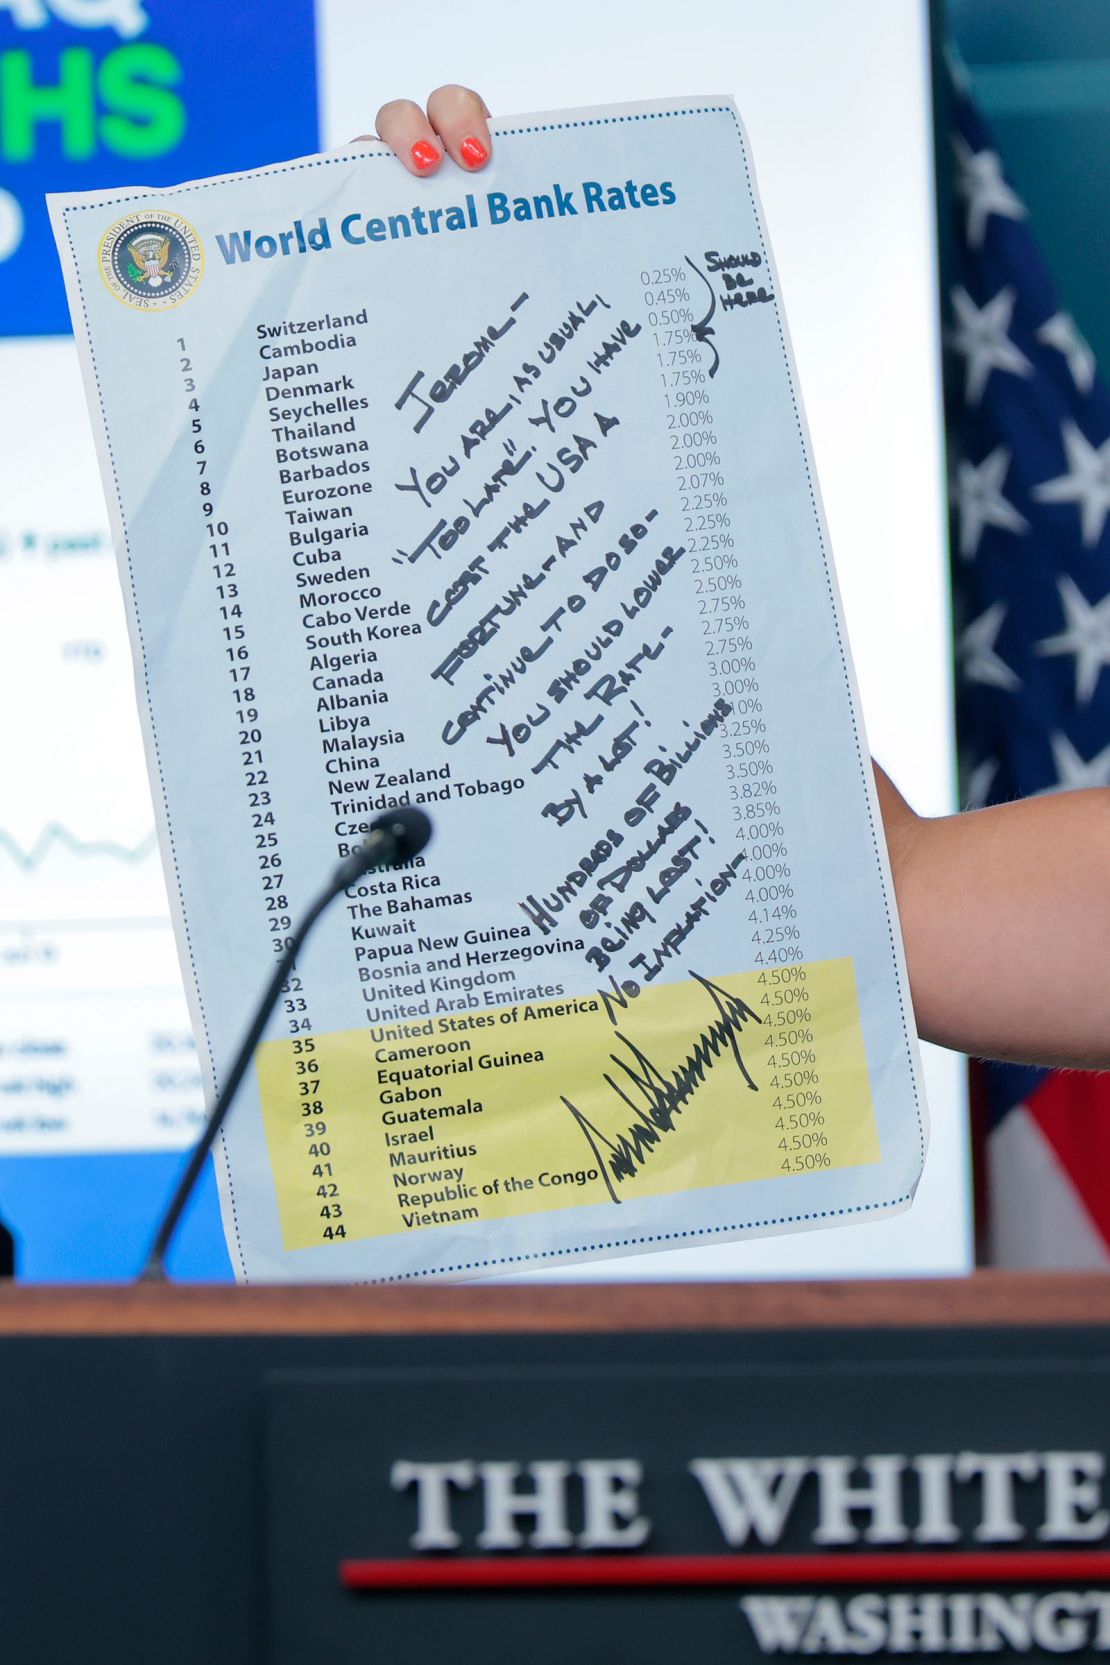 HS
World Central Bank Rates
SEAL OF THE PRESIDENT OF THE UNITED STATES
1 Switzerland 0.25%
2 Cambodia 0.45%
3 Japan 0.50%
4 Denmark 1.75%
5 Seychelles 1.75%
6 Thailand 1.75%
7 Botswana 1.90%
8 Barbados 2.00%
9 Eurozone 2.00%
10 Taiwan 2.00%
11 Bulgaria 2.07%
12 Cuba 2.25%
13 Sweden 2.25%
14 Morocco 2.25%
15 Cabo Verde 2.50%
16 South Korea 2.50%
17 Algeria 2.75%
18 Canada 2.75%
19 Albania 2.75%
20 Libya 3.00%
21 Malaysia 3.00%
22 China 10%
23 New Zealand 3.25%
24 Trinidad and Tobago 3.50%
25 3.50%
26 3.82%
27 3.85%
28 Costa Rica 4.00%
29 The Bahamas 4.00%
30 Kuwait 4.00%
Papua New Guinea 4.00%
32 Bosnia and Herzegovina 4.14%
33 United Kingdom 4.25%
34 United Arab Emirates 4.40%
35 United States of America 4.50%
36 Cameroon 4.50%
37 Equatorial Guinea 4.50%
38 Gabon 4.50%
39 Guatemala 4.50%
40 Israel 4.50%
41 Mauritius 4.50%
42 Norway 4.50%
43 Republic of the Congo 4.50%
44 Vietnam 4.50%
SHOULD
BE
HERE
JEROME—
YOU ARE, AS USUAL,
"TOO LATE". YOU HAVE
COST THE USA A
FORTUNE—AND
CONTINUE TO DO SO—
YOU SHOULD LOWER
THE RATE—
BY A LOT!
HUNDREDS OF BILLIONS
OF DOLLARS
BEING LOST!
NO INFLATION—
THE WHITE
WASHINGT